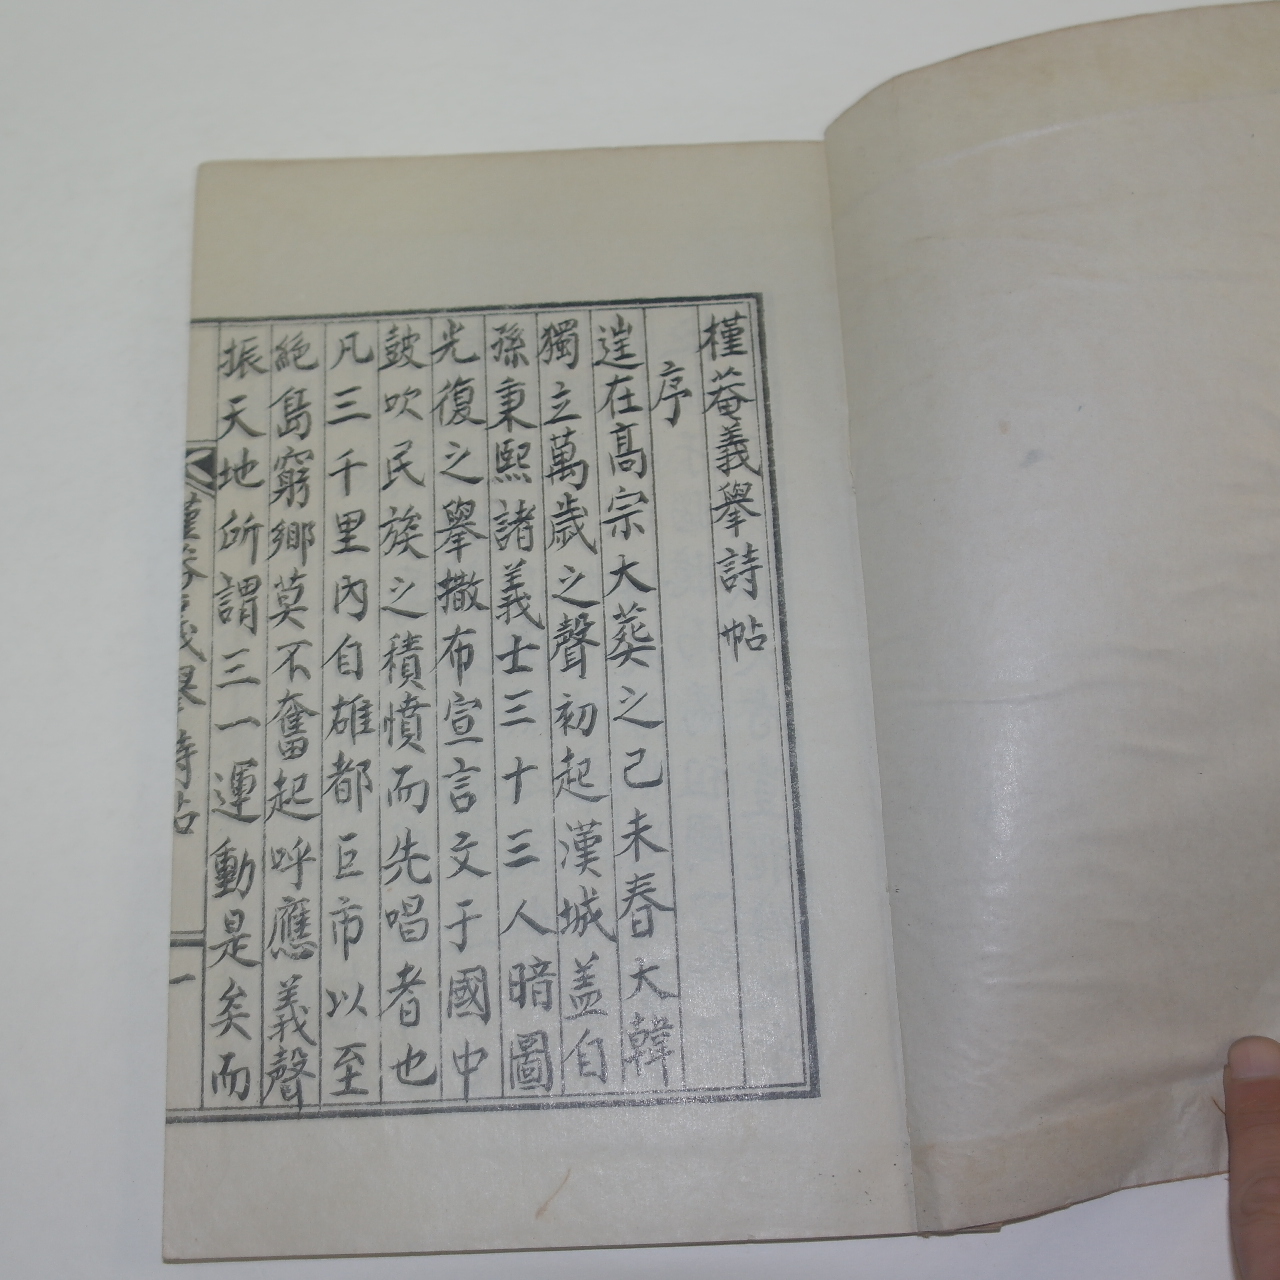 槿菴義擧詩帖
序
逞在高宗大葬之己未春大韓
獨立萬歲之聲初起漢城盖自
孫秉熙諸義士三十三人暗圖
光復之擧撒布宣言文于國中
鼓吹民族之積憤而先唱者也
凡三千里內自雄都巨市以至
絶島窮鄉莫不奮起呼應義聲
振天地所謂三一運動是矣而
槿菴義擧詩帖
一